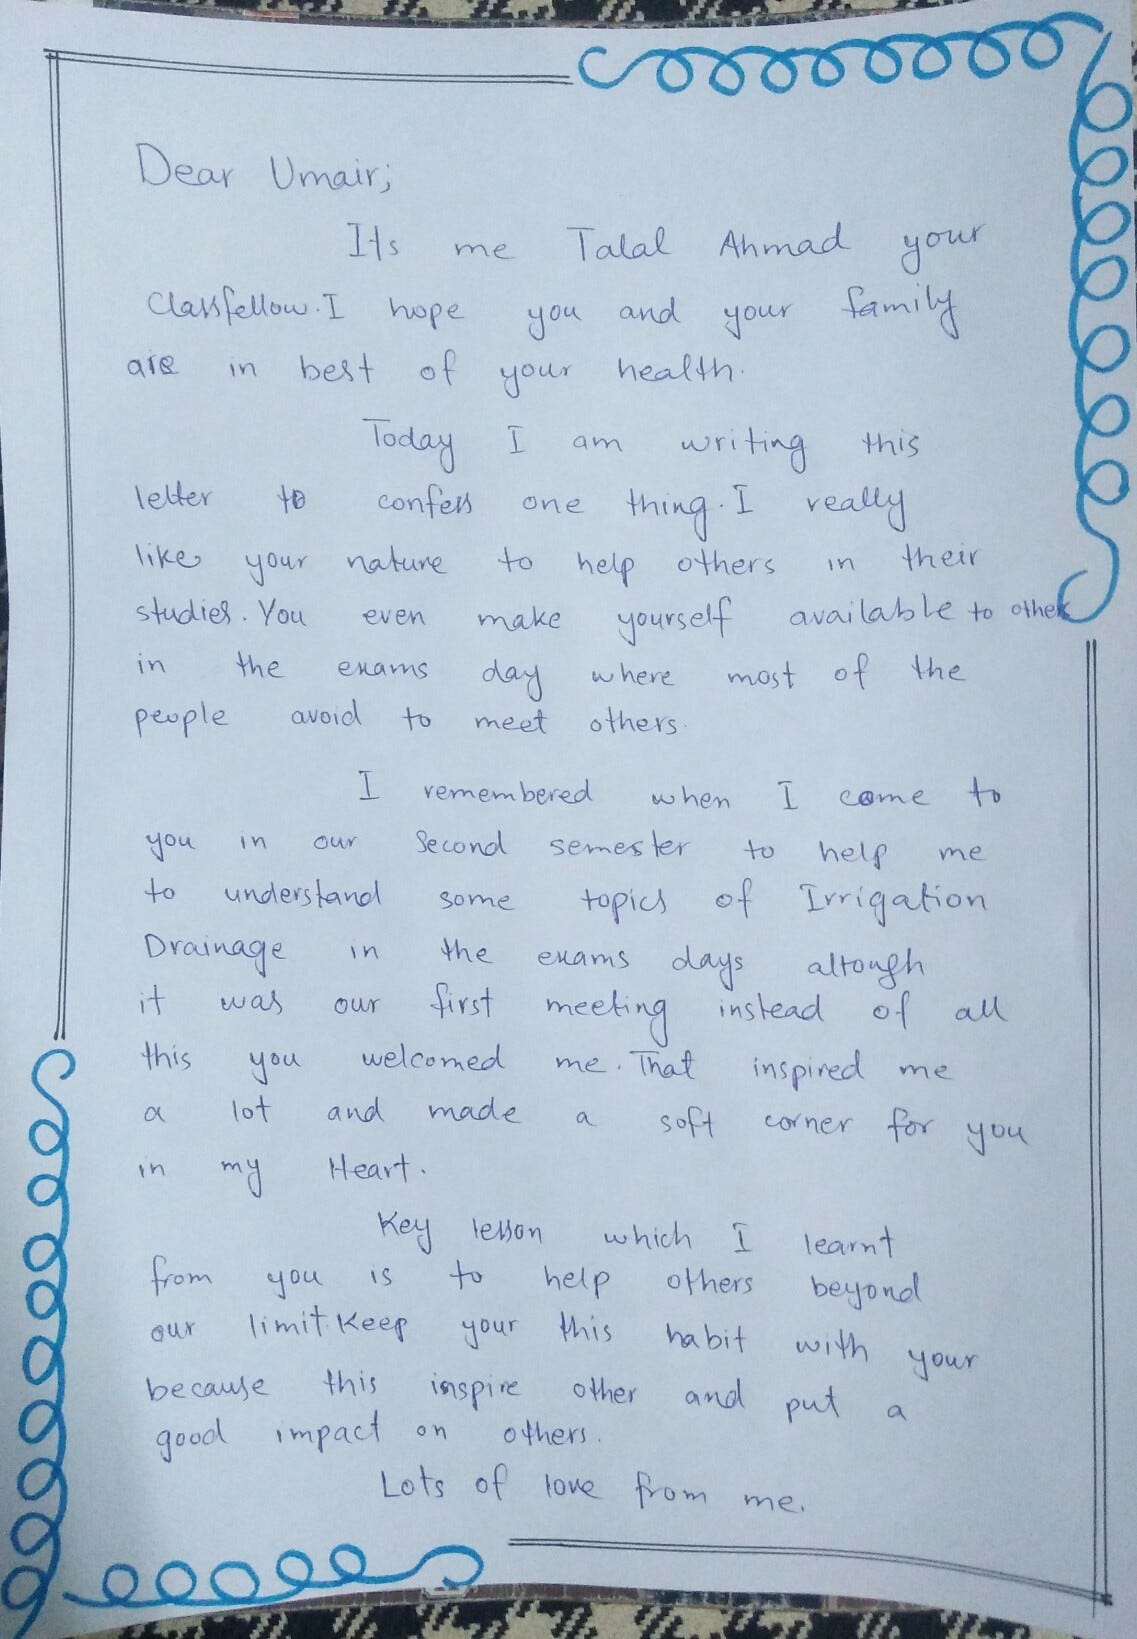 Dear Umair;
Its me Talal Ahmad your
Classfellow. I hope you and your family
are in best of your health.
Today I am writing this
letter to confess one thing. I really
like your nature to help others in their
studies. You even make yourself available to other
in the exams day where most of the
people avoid to meet others.
I remembered when I come to
you in our Second semester to help me
to understand some topics of Irrigation
Drainage in the exams days altough
it was our first meeting instead of all
this you welcomed me. That inspired me
a lot and made a soft corner for you
in my Heart.
Key lesson which I learnt
from you is to help others beyond
our limit. Keep your this habit with your
because this inspire other and put a
good impact on others.
Lots of love from me.